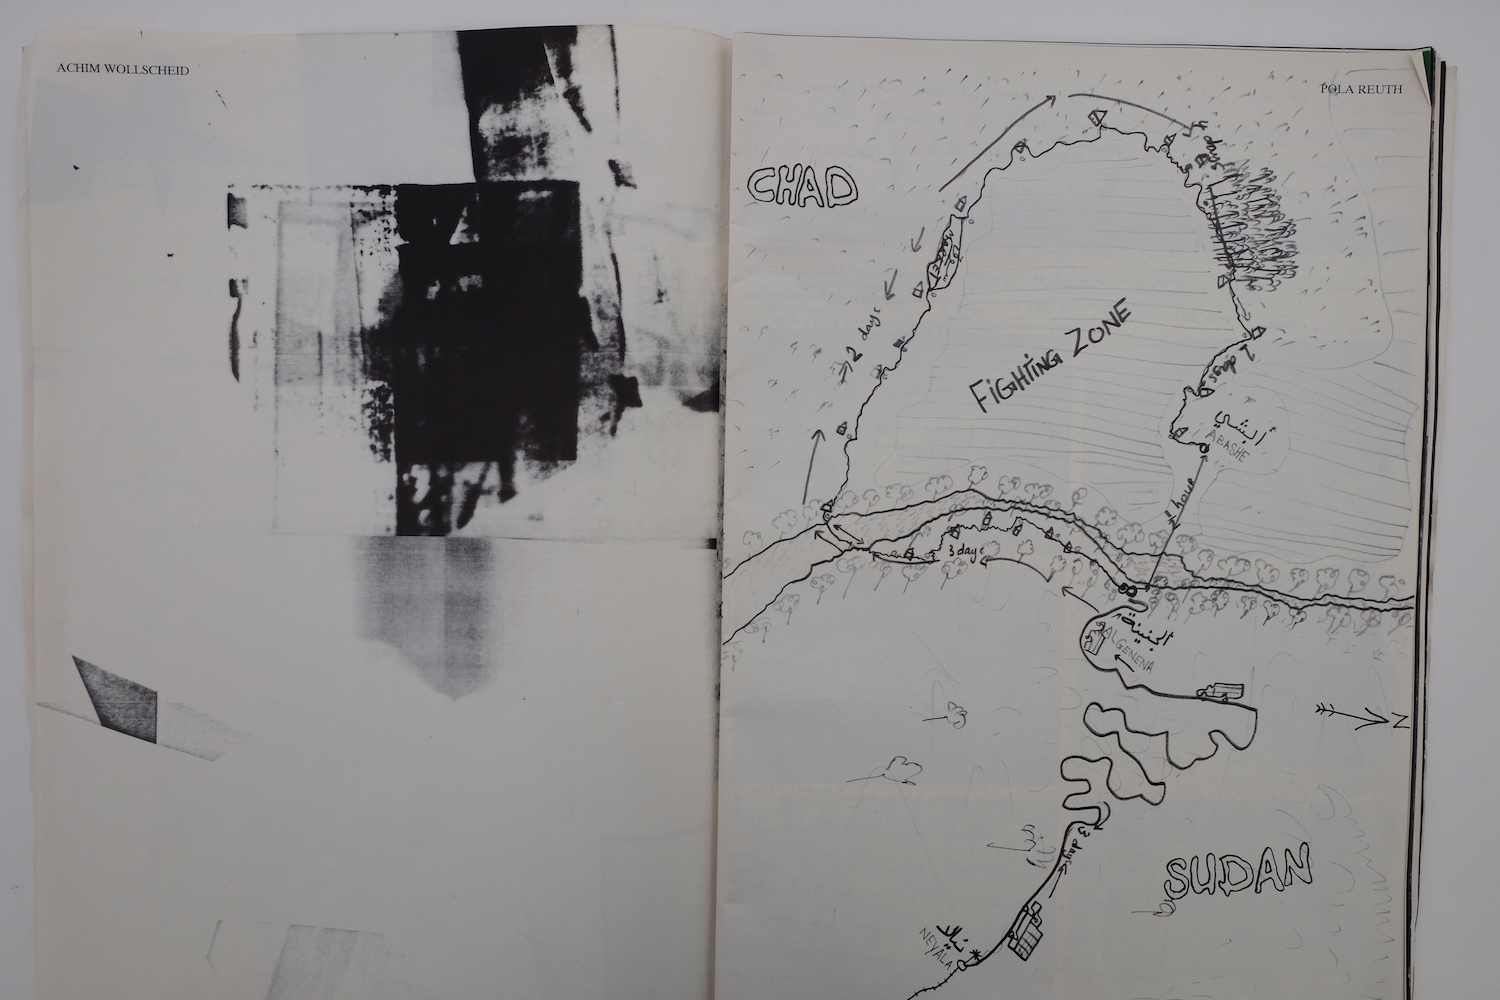 ACHIM WOLLSCHEID
POLA REUTH
CHAD
4 days
2 days
FIGHTING ZONE
2 days
أبشي
ABASHE
1 hour
3 days
الجنينة
ALGENENA
N
3 days
SUDAN
نيالا
NEYALA